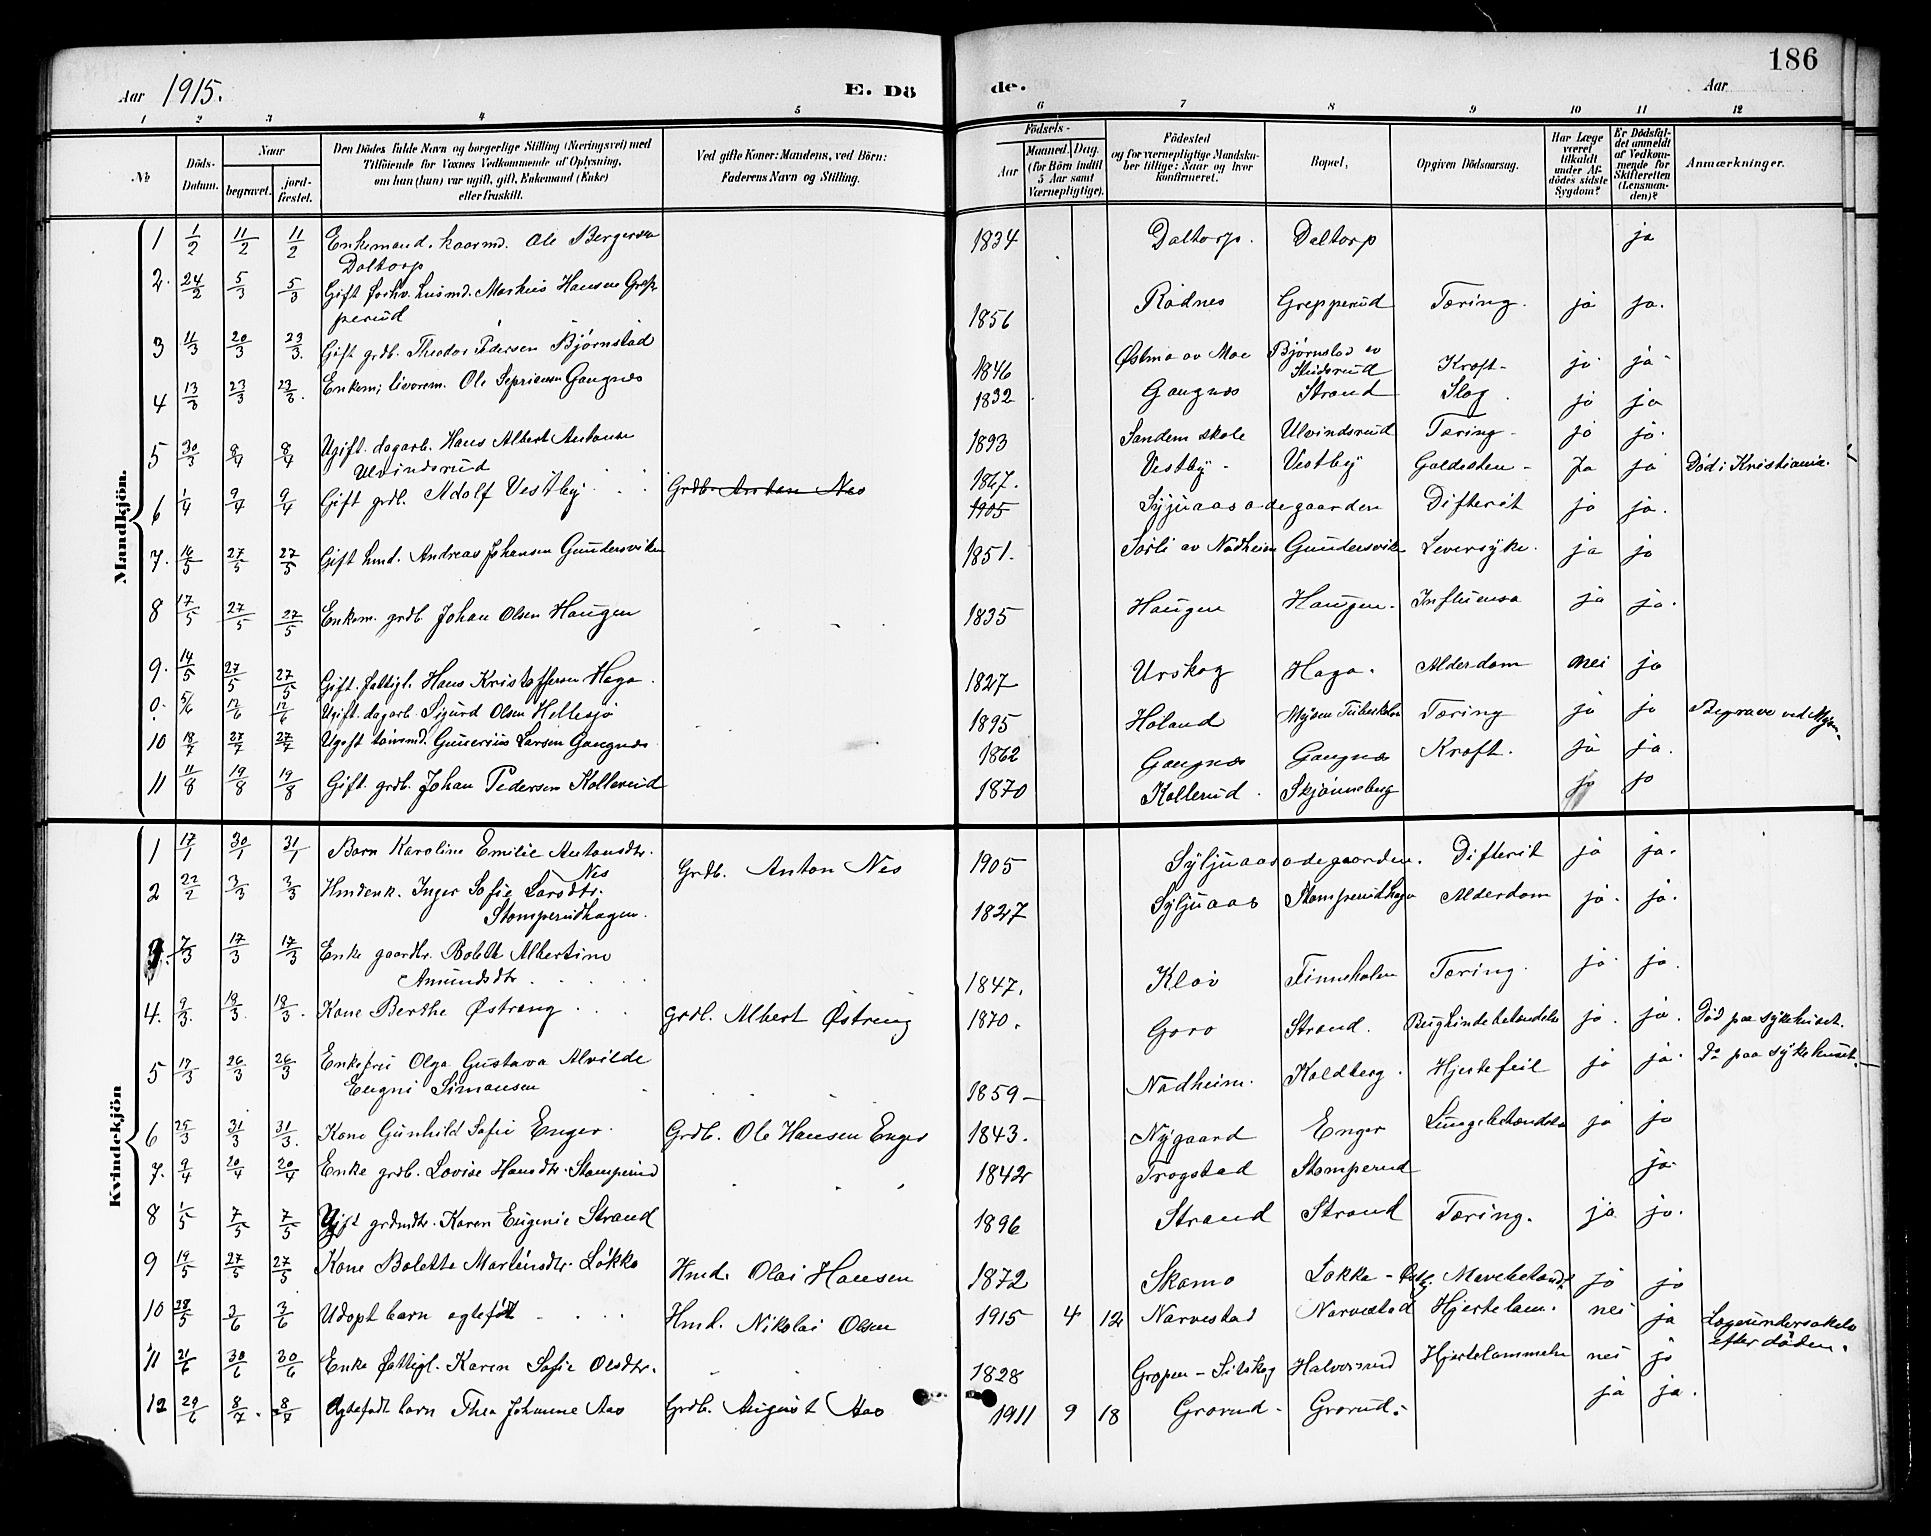 Aar 1915.
E. Dö de.
186
Aar
1 2 3 4 5 6 7 8 9 10 11 12
No
Döds-Datum.
Naar
begravet.
jord-fæstet.
Den Dödes fulde Navn og borgerlige Stilling (Næringsvei) med
Tilföiende for Voxnes Vedkommende af Oplysning,
om han (hun) var ugift, gift, Enkemand (Enke)
eller fraskilt.
Ved gifte Koner: Mandens, ved Börn:
Faderens Navn og Stilling.
Födsels-
Aar
Maaned. Dag.
(for Börn indtil
5 Aar samt
Værnepligtige).
Födested
og for værnepligtige Mandska-
ber tillige: Naar og hvor
konfirmeret.
Bopæl,
Opgiven Dödsaarsag.
Har Læge
været
tilkaldt
under Af-
dödes sidste
Sygdom?
Er Dödsfal-
det anmeldt
af Vedkom-
mende for
Skifteretten
(Lensman-
den)?
Anmærkninger.
Mandkjön.
1 1/2 11/2 11/2 Enkemand. kaarmd. Ole Bergersen 1834 Daltorp. Daltorp ja
Daltorp
2. 24/2 5/3 5/3 Gift forhv. husmd. Markus Hansen Grep- 1856 Rødnes Grepperud Tæring. ja ja.
perud
3 11/3 20/3 23/3. Gift grdb. Theodor Pedersen Bjørnstad 1846 Østmo av Moe Bjørnstad av Kræft- ja ja-
4 13/3 23/3 23/3. Enkem; livørem. Ole Gaugnæs 1832 Gaugnæs Strand Slag. ja ja
5 30/3 8/4 8/4 Ugift. dagarb. Hans Albert Antonsen 1893 Sandem skole Ulvindsrud Tæring- ja ja.
Ulvindsrud
6 1/4 9/4 9/4 Gift grdb. Adolf Vestby Grdb. Anton Nes 1867. Vestby- Vestby Galdesten- Ja ja Död i Kristiania.
1905 Difterit ja ja.
7. 16/5 27/5 27/5 Gift hmd. Andreas Johansen Gundersviken 1851. Sørli av Nádheim Gundersviken Leversyke. ja ja
8 17/5 27/5 27/5 Enkem. grdb Johan Olsen Haugen 1835 Haugen Haugen. Influensa ja ja.
9. 14/5 27/5 27/5 Gift. fattigl. Hans Kristoffersen Haga. 1827 Urskog Haga. Alderdom nei ja
0. 5/6 12/6 12/6 Ugift. dagarb. Sigurd Olsen Hellesjö 1895 Høland Mysen Tæring ja ja Begravd ved Mysen.
10 18/7 27/7 27/7 Ugift Gunerius Larsen Gaugnæs 1862 Gaugnæs Gaugnæs Kræft. ja ja.
11 11/8 19/8 19/8 Gift. grdb. Johan Pedersen Kollerud 1870 Kollerud. Skjønneberg ja ja
Kvindekjön
1 17/1 30/1 31/1 Barn Karoline Emilie Antonsdtr. Grdb. Anton Nes 1905 Syljuaasødegaarden. Difterit ja ja.
Nes
2 22/2 3/3 3/3 Hmdenk. Inger Sofie Larsdtr. 1827 Syljuaas Stomperudhagen Alderdom ja. ja.
Stomperudhagen.
3. 7/3 17/3 17/3 Enke gaardbr. Bolette Albertine 1847. Kløv Finneholen Tæring. ja. ja.
Amundsdtr
4. 9/3. 19/3. 19/3. Kone Berthe Østreng grdb. Albert Østreng 1870. Goro Strand. Bughindebetændelse ja. ja. Død paa sykehuset.
5 17/3 26/3 26/3 Enkefru Olga Gustava Alvilde 1859- Nádheim. Koldberg. Hjertefeil ja ja. Do paa sykehuset.
Eugni Simonsen
6 25/3 31/3 31/3. Kone Gunhild Sofie Enger. Grdb. Ole Hansen Enger 1843. Nygaard Enger Lungebetændelse ja ja
7. 9/4 20/4 20/4 Enke grdb. Lovise Hansdtr. Stomperud 1842 Trøgstad Stomperud ja.
8 1/5 7/5 7/5 Ugift grdmdtr. Karen Eugenie Strand 1896 Strand Strand Tæring. ja ja.
9 19/5 27/5 27/5 Kone Bolette Martinsdtr. Løkke Hmd. Olai Hansen 1872 Skamo Løkke- Mavebetændt. ja ja
10 28/5 3/6 3/6 Udöpt barn egtefödt Hmd. Nikolai Olsen 1915 4 12 Narvestad Narvestad Hjertelam. nei ja Lægeundersøkelse
efter døden.
11 21/6 30/6 30/6 Enke Fattigl. Karen Sofie Olsdtr. 1828 Gropen-Setskog Halvorsrud Hjertelammelse nei ja
12 29/6 8/7. 8/7 Egtefødt barn Thea Johanne Aas Grdb. August Aas 1911 9 18 Grorud- Grorud. ja ja.